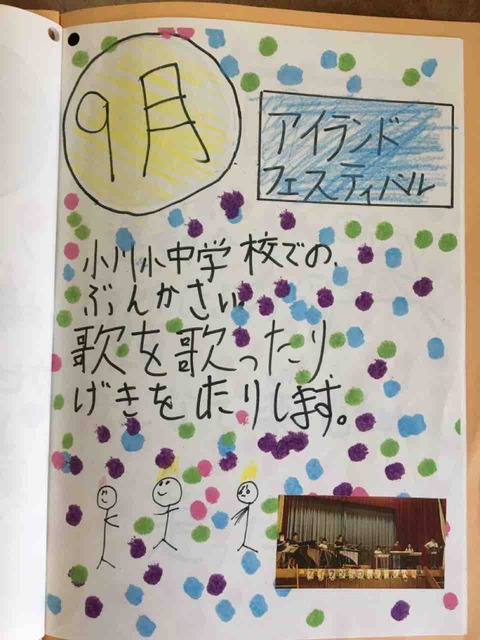 9月
アイランド
フェスティバル
小川小中学校での、
ぶんかさい
歌を歌ったり
げきをしたりします。